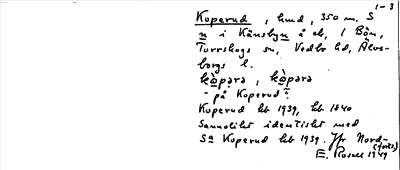 1-3
Koperud, hmd, 350 m. S
n i Känsbyn å ek, 1 Bön,
Torrskogs sn, Vedbo hd, Älvs-
borgs l.
kòpərə, kòpərə
- på Koperud
Koperud kb 1939, kb 1840
Sannolikt identiskt med
Sa Koperud kb 1939. Jfr Nord-
(forts)
E. Rosell 1949